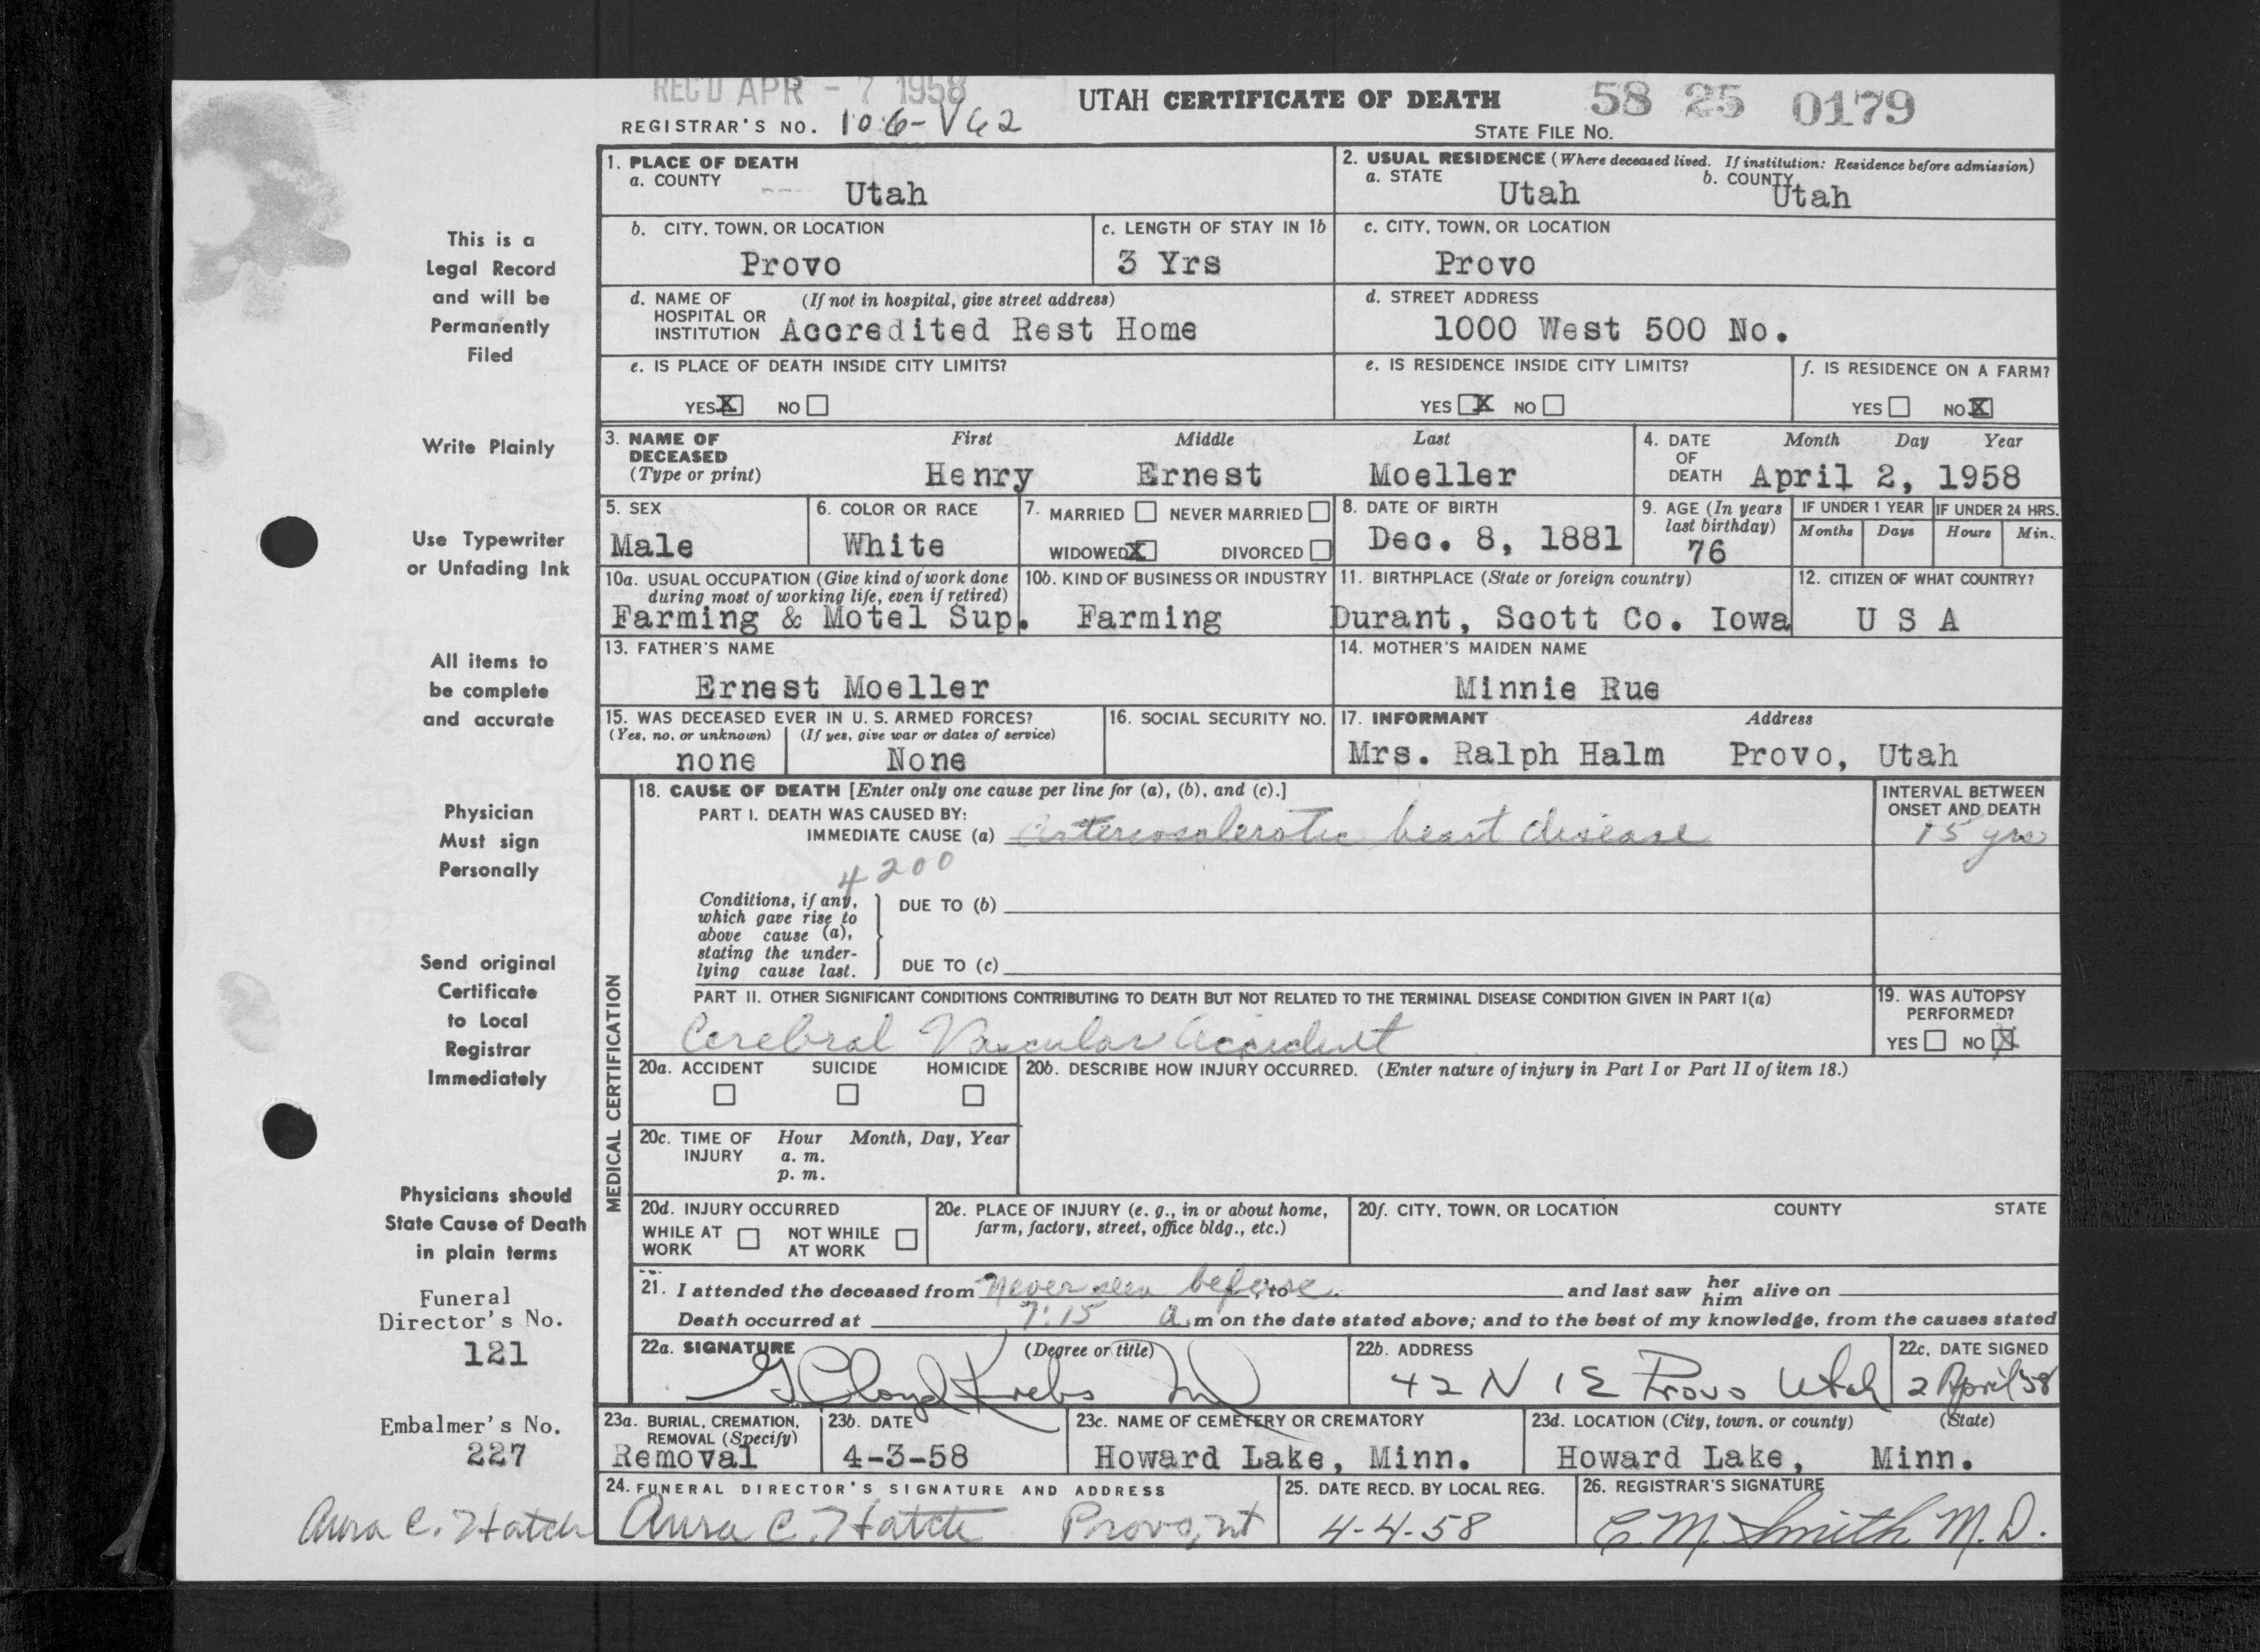 REC'D APR - 7 1958
UTAH CERTIFICATE OF DEATH
58 25 0179
REGISTRAR'S NO. 106-V62
STATE FILE NO.
1. PLACE OF DEATH
a. COUNTY Utah
2. USUAL RESIDENCE (Where deceased lived. If institution: Residence before admission)
a. STATE Utah b. COUNTY Utah
b. CITY, TOWN, OR LOCATION Provo
c. LENGTH OF STAY IN 1b 3 Yrs
c. CITY, TOWN, OR LOCATION Provo
d. NAME OF HOSPITAL OR INSTITUTION (If not in hospital, give street address) Accredited Rest Home
d. STREET ADDRESS 1000 West 500 No.
e. IS PLACE OF DEATH INSIDE CITY LIMITS?
YES X NO
e. IS RESIDENCE INSIDE CITY LIMITS?
YES X NO
f. IS RESIDENCE ON A FARM?
YES NO X
3. NAME OF DECEASED (Type or print)
First Middle Last
Henry Ernest Moeller
4. DATE OF DEATH
Month Day Year
April 2, 1958
5. SEX Male
6. COLOR OR RACE White
7. MARRIED NEVER MARRIED
WIDOWED X DIVORCED
8. DATE OF BIRTH Dec. 8, 1881
9. AGE (In years last birthday) 76
IF UNDER 1 YEAR Months Days
IF UNDER 24 HRS. Hours Min.
10a. USUAL OCCUPATION (Give kind of work done during most of working life, even if retired)
Farming & Motel Sup.
10b. KIND OF BUSINESS OR INDUSTRY Farming
11. BIRTHPLACE (State or foreign country) Durant, Scott Co. Iowa
12. CITIZEN OF WHAT COUNTRY? U S A
13. FATHER'S NAME Ernest Moeller
14. MOTHER'S MAIDEN NAME Minnie Rue
15. WAS DECEASED EVER IN U. S. ARMED FORCES?
(Yes, no, or unknown) (If yes, give war or dates of service)
none None
16. SOCIAL SECURITY NO.
17. INFORMANT Address
Mrs. Ralph Halm Provo, Utah
MEDICAL CERTIFICATION
18. CAUSE OF DEATH [Enter only one cause per line for (a), (b), and (c).]
INTERVAL BETWEEN ONSET AND DEATH
PART I. DEATH WAS CAUSED BY:
IMMEDIATE CAUSE (a) Arteriosclerotic heart disease 15 yrs
4200
Conditions, if any, which gave rise to above cause (a), stating the underlying cause last.
DUE TO (b)
DUE TO (c)
PART II. OTHER SIGNIFICANT CONDITIONS CONTRIBUTING TO DEATH BUT NOT RELATED TO THE TERMINAL DISEASE CONDITION GIVEN IN PART I(a)
Cerebral Vascular Accident
19. WAS AUTOPSY PERFORMED?
YES NO X
20a. ACCIDENT SUICIDE HOMICIDE
20b. DESCRIBE HOW INJURY OCCURRED. (Enter nature of injury in Part I or Part II of item 18.)
20c. TIME OF INJURY Hour Month, Day, Year
a. m.
p. m.
20d. INJURY OCCURRED
WHILE AT WORK NOT WHILE AT WORK
20e. PLACE OF INJURY (e. g., in or about home, farm, factory, street, office bldg., etc.)
20f. CITY, TOWN, OR LOCATION COUNTY STATE
21. I attended the deceased from Never seen before, to and last saw her him alive on
Death occurred at 7:15 a.m on the date stated above; and to the best of my knowledge, from the causes stated
22a. SIGNATURE (Degree or title)
G Lloyd Krebs MD
22b. ADDRESS 42 N 1 E Provo Utah
22c. DATE SIGNED 2 April '58
23a. BURIAL, CREMATION, REMOVAL (Specify) Removal
23b. DATE 4-3-58
23c. NAME OF CEMETERY OR CREMATORY Howard Lake, Minn.
23d. LOCATION (City, town, or county) (State)
Howard Lake, Minn.
24. FUNERAL DIRECTOR'S SIGNATURE AND ADDRESS
Anra C. Hatch Provo, Ut
25. DATE RECD. BY LOCAL REG. 4-4-58
26. REGISTRAR'S SIGNATURE C. M. Smith M. D.
This is a
Legal Record
and will be
Permanently
Filed
Write Plainly
Use Typewriter
or Unfading Ink
All items to
be complete
and accurate
Physician
Must sign
Personally
Send original
Certificate
to Local
Registrar
Immediately
Physicians should
State Cause of Death
in plain terms
Funeral
Director's No.
121
Embalmer's No.
227
Anra C. Hatch